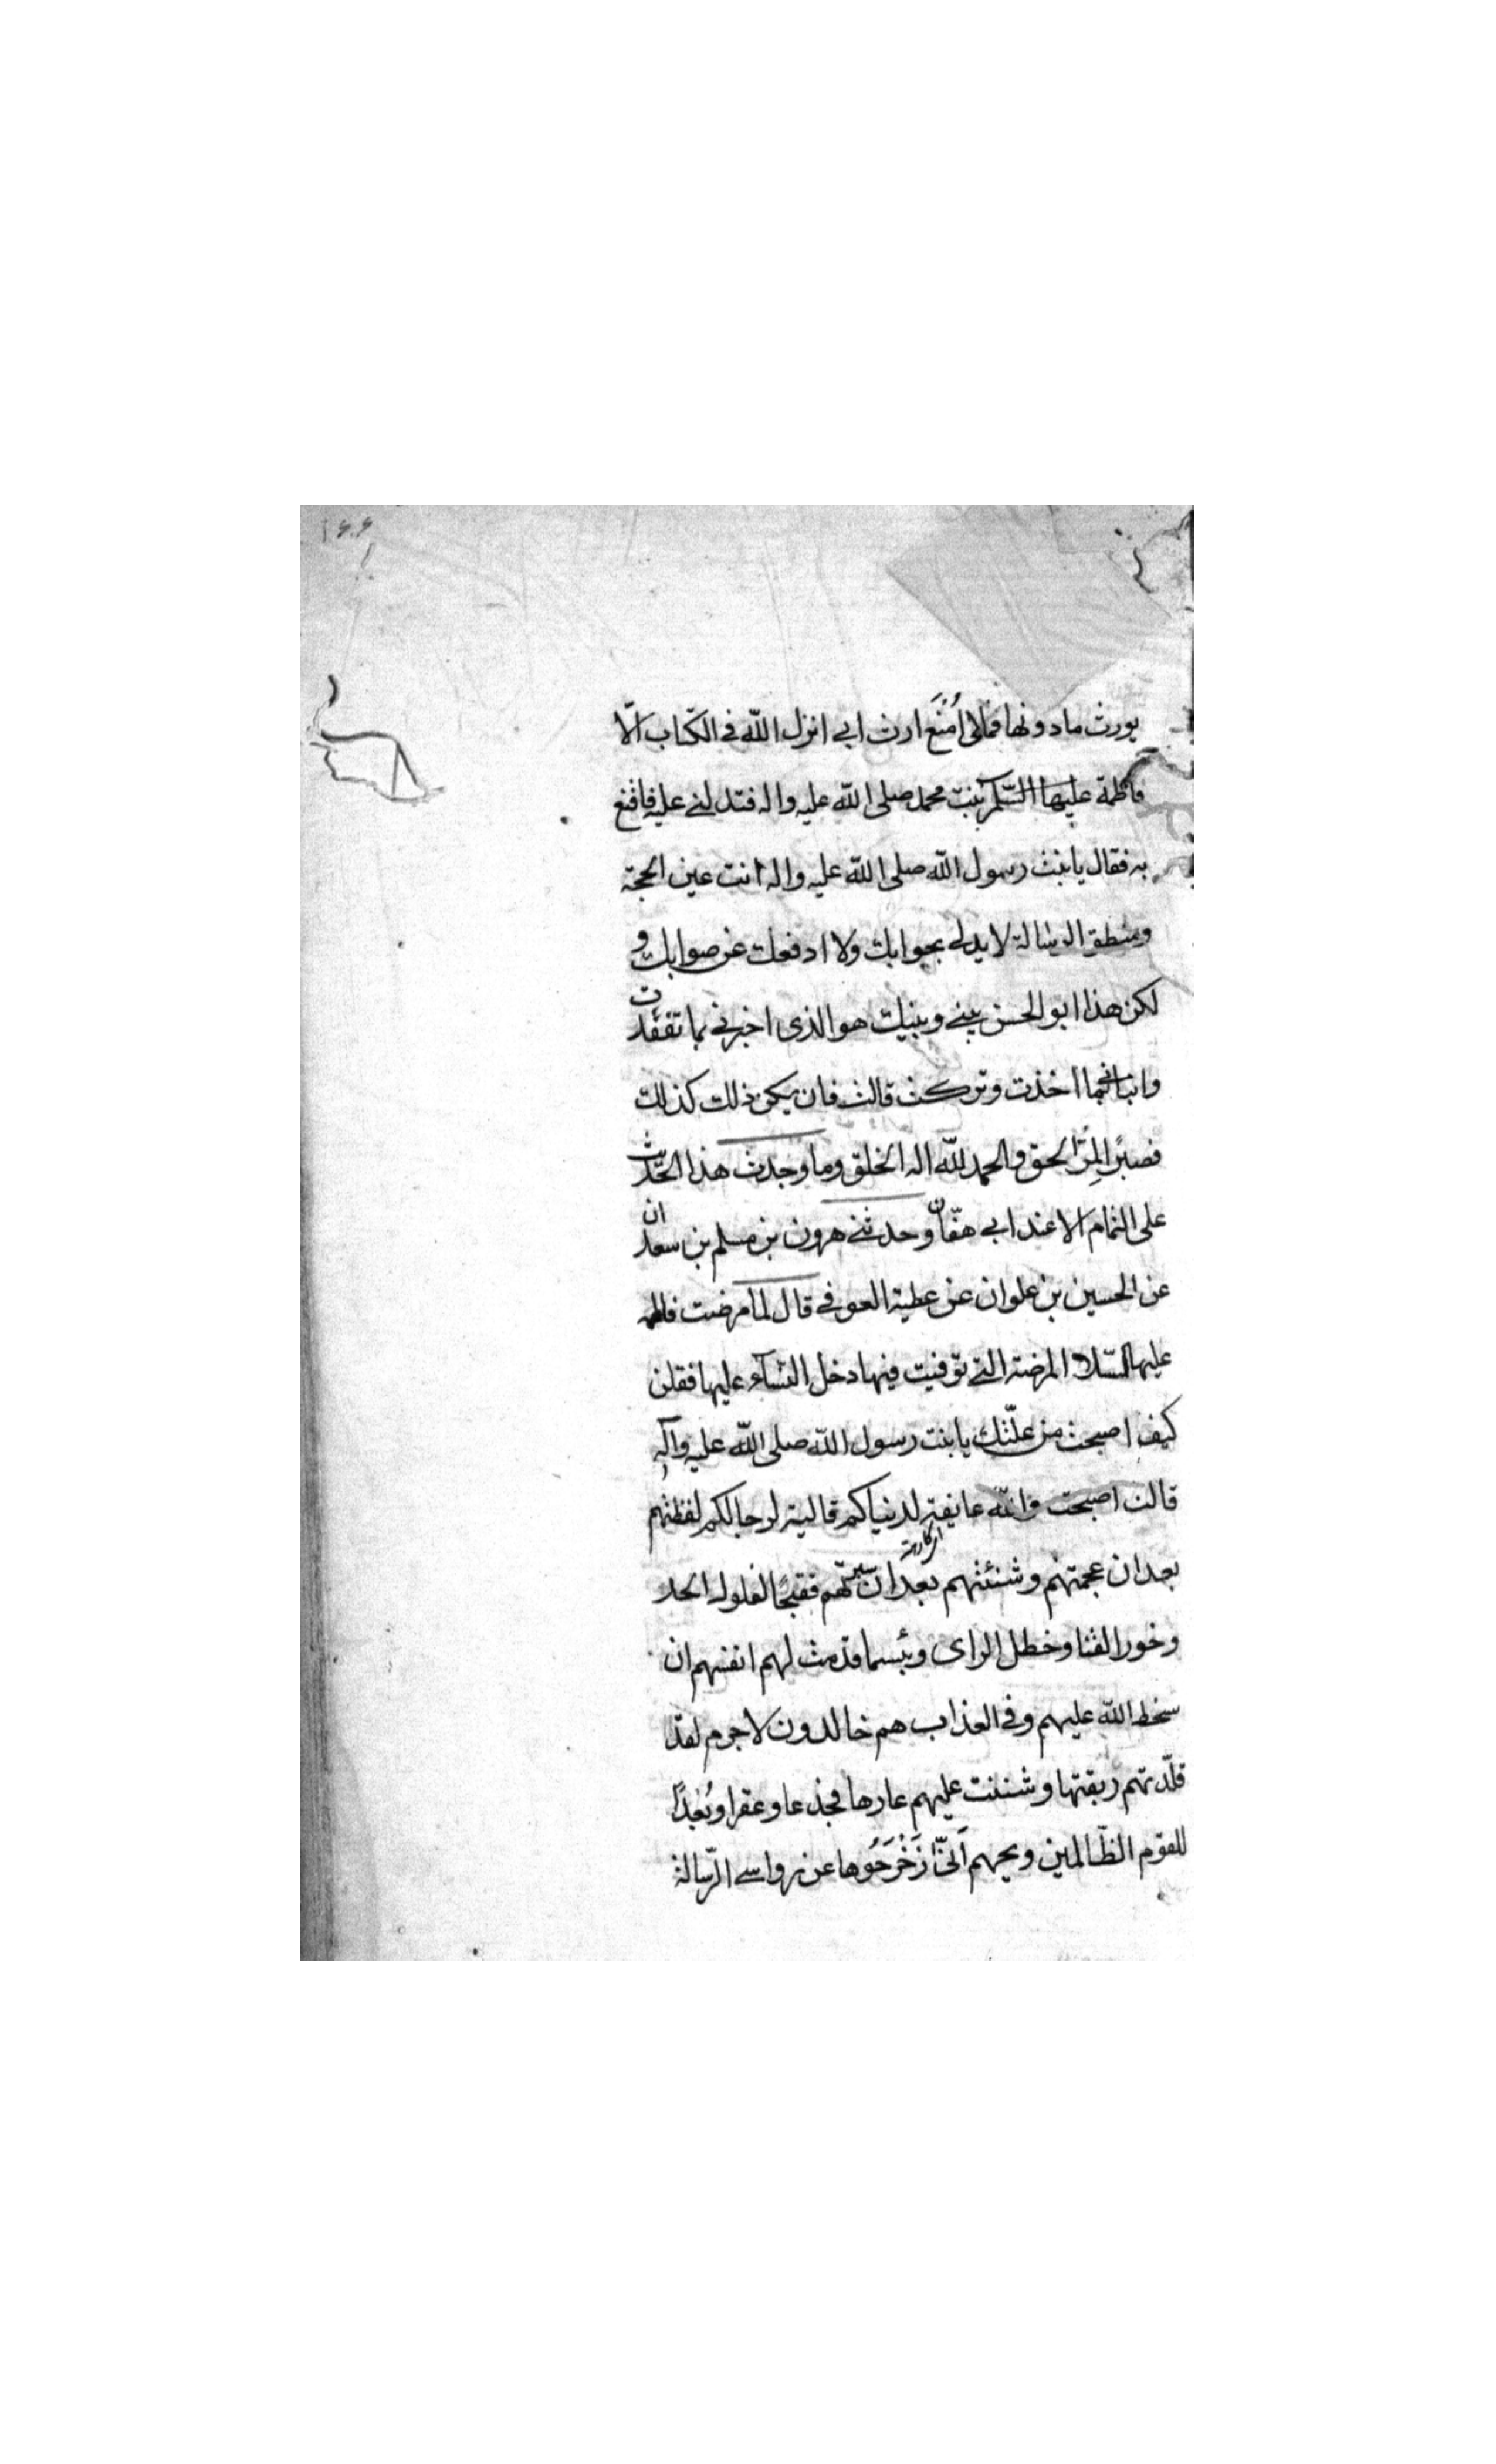 يورث مادونها فمالى اُمْنَع ارث ابى انزل اللّه فى الكتاب الّا
فاطمة عليها السّلم بنت محمد صلى اللّه عليه واله فتدلنى عليه فاقنع
به فقال يا بنت رسول اللّه صلى اللّه عليه واله انت عين الحجة
ومنطق الرسالة لا يدلى بجوابك ولا ادفعك عن صوابك و
لكن هذا ابو الحسن بينى وبينك هو الذى اخبرنى بما تفقدت
وانبانى بما اخذت وتركت قالت فان يكن ذلك كذلك
فصبرًا لِمرّ الحق والحمد للّه اله الخلق وما وجدت هذا الحديث
على التمام الا عند ابى هفّان وحدثنى هرون بن مسلم بن سعدان
عن الحسين بن علوان عن عطية العوفى قال لما مرضت فاطمه
عليها السّلام المرضة التى توفيت فيها دخل النسآء عليها فقلن
كيف اصبحت من علّتك يا بنت رسول اللّه صلى اللّه عليه وآله
قالت اصبحت واللّه عايفة لدنياكم قالية لرجالكم لفظتهم
بعد ان عجمتهم وشنئتهم بعد ان سبرتهم فقبحًا لفلول الحد
وخور القنا وخطل الراى وبئسما قدمت لهم انفسهم ان
سخط اللّه عليهم وفى العذاب هم خالدون لا جرم لقد
قلّدتهم ربقتها وشننت عليهم عارها فجذعا وعقرا وبُعْدًا
للقوم الظّالمين ويحهم اَنّىٰ زَحْزَحُوها عن رواسى الرّسالة